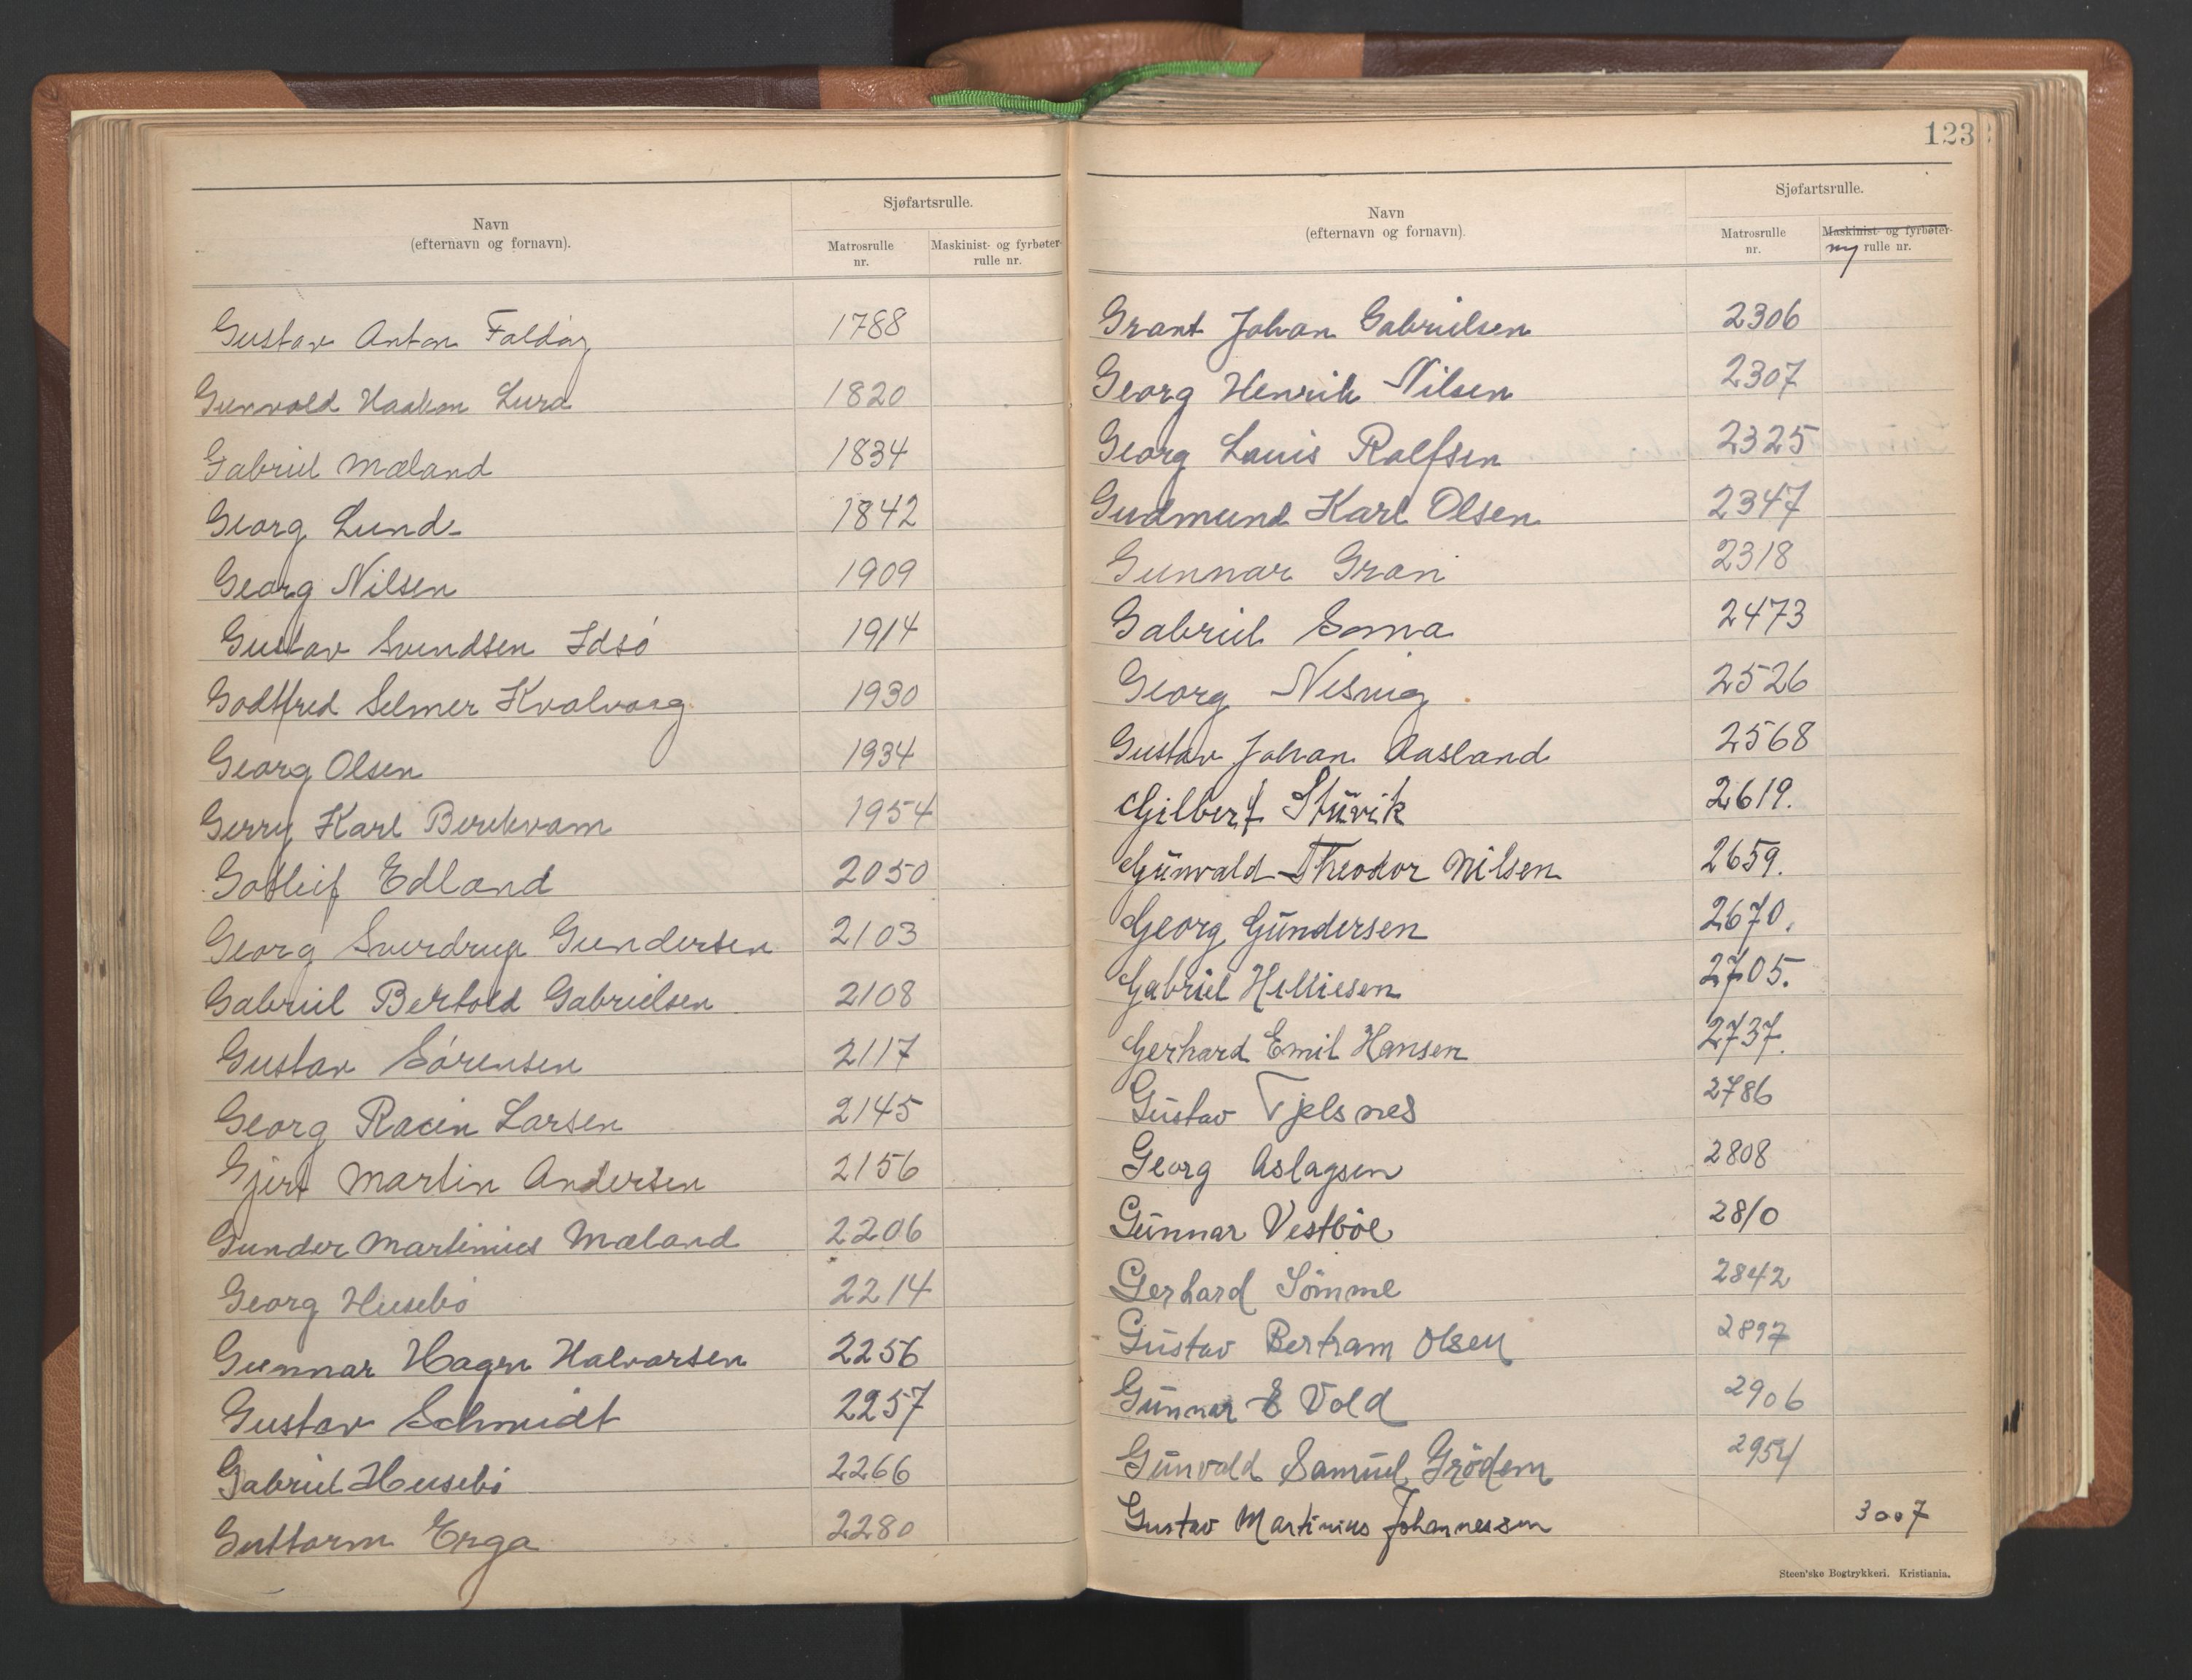 Navn
(efternavn og fornavn).
Sjøfartsrulle.
Matrosrulle
nr.
Maskinist- og fyrbøter-
rulle nr.
Gustav Anton Faldöy 1788
Gunvald Haakon Lura 1820
Gabriel Mæland 1834
Georg Lunde 1842
Georg Nilsen 1909
Gustav Svendsen Idsö 1914
Godtfred Selmer Kvalvaag 1930
Georg Olsen 1934
Gerry Karl Berekvam 1954
Gotleif Edland 2050
Georg Sverdrup Gundersen 2103
Gabriel Bertold Gabrielsen 2108
Gustav Sörensen 2117
Georg Racin Larsen 2145
Gjert Martin Andersen 2156
Gunder Martinius Mæland 2206
Georg Husebö 2214
Gunnar Hagn Halvorsen 2256
Gustav Schmidt 2257
Gabriel Husebö 2266
Guttorm Erga 2280
123
Navn
(efternavn og fornavn).
Sjøfartsrulle.
Matrosrulle
nr.
Maskinist- og fyrbøter-
ny rulle nr.
Grant Johan Gabrielsen 2306
Georg Henrik Nilsen 2307
Georg Louis Rolfsen 2325
Gudmund Karl Olsen 2347
Gunnar Grani 2318
Gabriel Soma 2473
Georg Nesvig 2526
Gustav Johan Aasland 2568
Gilbert Stüvik 2619.
Gunvald Theodor Nilsen 2659.
Georg Gundersen 2670.
Gabriel Helliesen 2705.
Gerhard Emil Hansen 2737.
Gustav Tjelsnes 2786
Georg Aslagsen 2808
Gunnar Vestböe 2810
Gerhard Sömme 2842
Gustav Bertram Olsen 2897
Gunnar E Vold 2906
Gunvald Samuel Grödem 2954
Gustav Martinius Johannessen 3007
Steen'ske Bogtrykkeri. Kristiania.